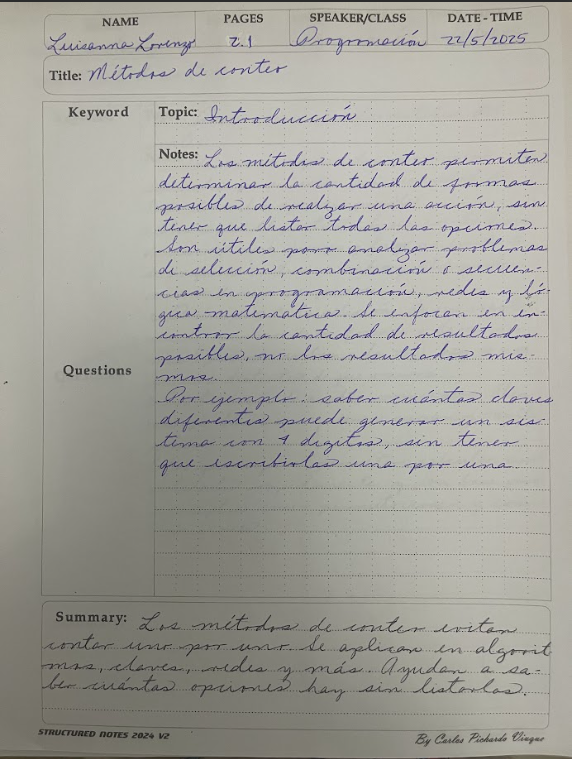 NAME PAGES SPEAKER/CLASS DATE - TIME
Luisanna Lorenzo 2.1 Programación 22/5/2025
Title: Métodos de conteo
Keyword
Topic: Introducción
Notes: Los métodos de conteo permiten
determinar la cantidad de formas
posibles de realizar una acción, sin
tener que listar todas las opciones.
Son útiles para analizar problemas
de selección, combinación o secuen-
cias en programación, redes y ló-
gica matemática. Se enfocan en en-
contrar la cantidad de resultados
posibles, no los resultados mis-
mos.
Questions
Por ejemplo: saber cuántas claves
diferentes puede generar un sis-
tema con 4 dígitos, sin tener
que escribirlas una por una.
Summary: Los métodos de conteo evitan
contar uno por uno. Se aplican en algorit
mos, claves, redes y más. Ayudan a sa-
ber cuántas opciones hay sin listarlas.
STRUCTURED NOTES 2024 V2
By Carlos Pichardo Viuque